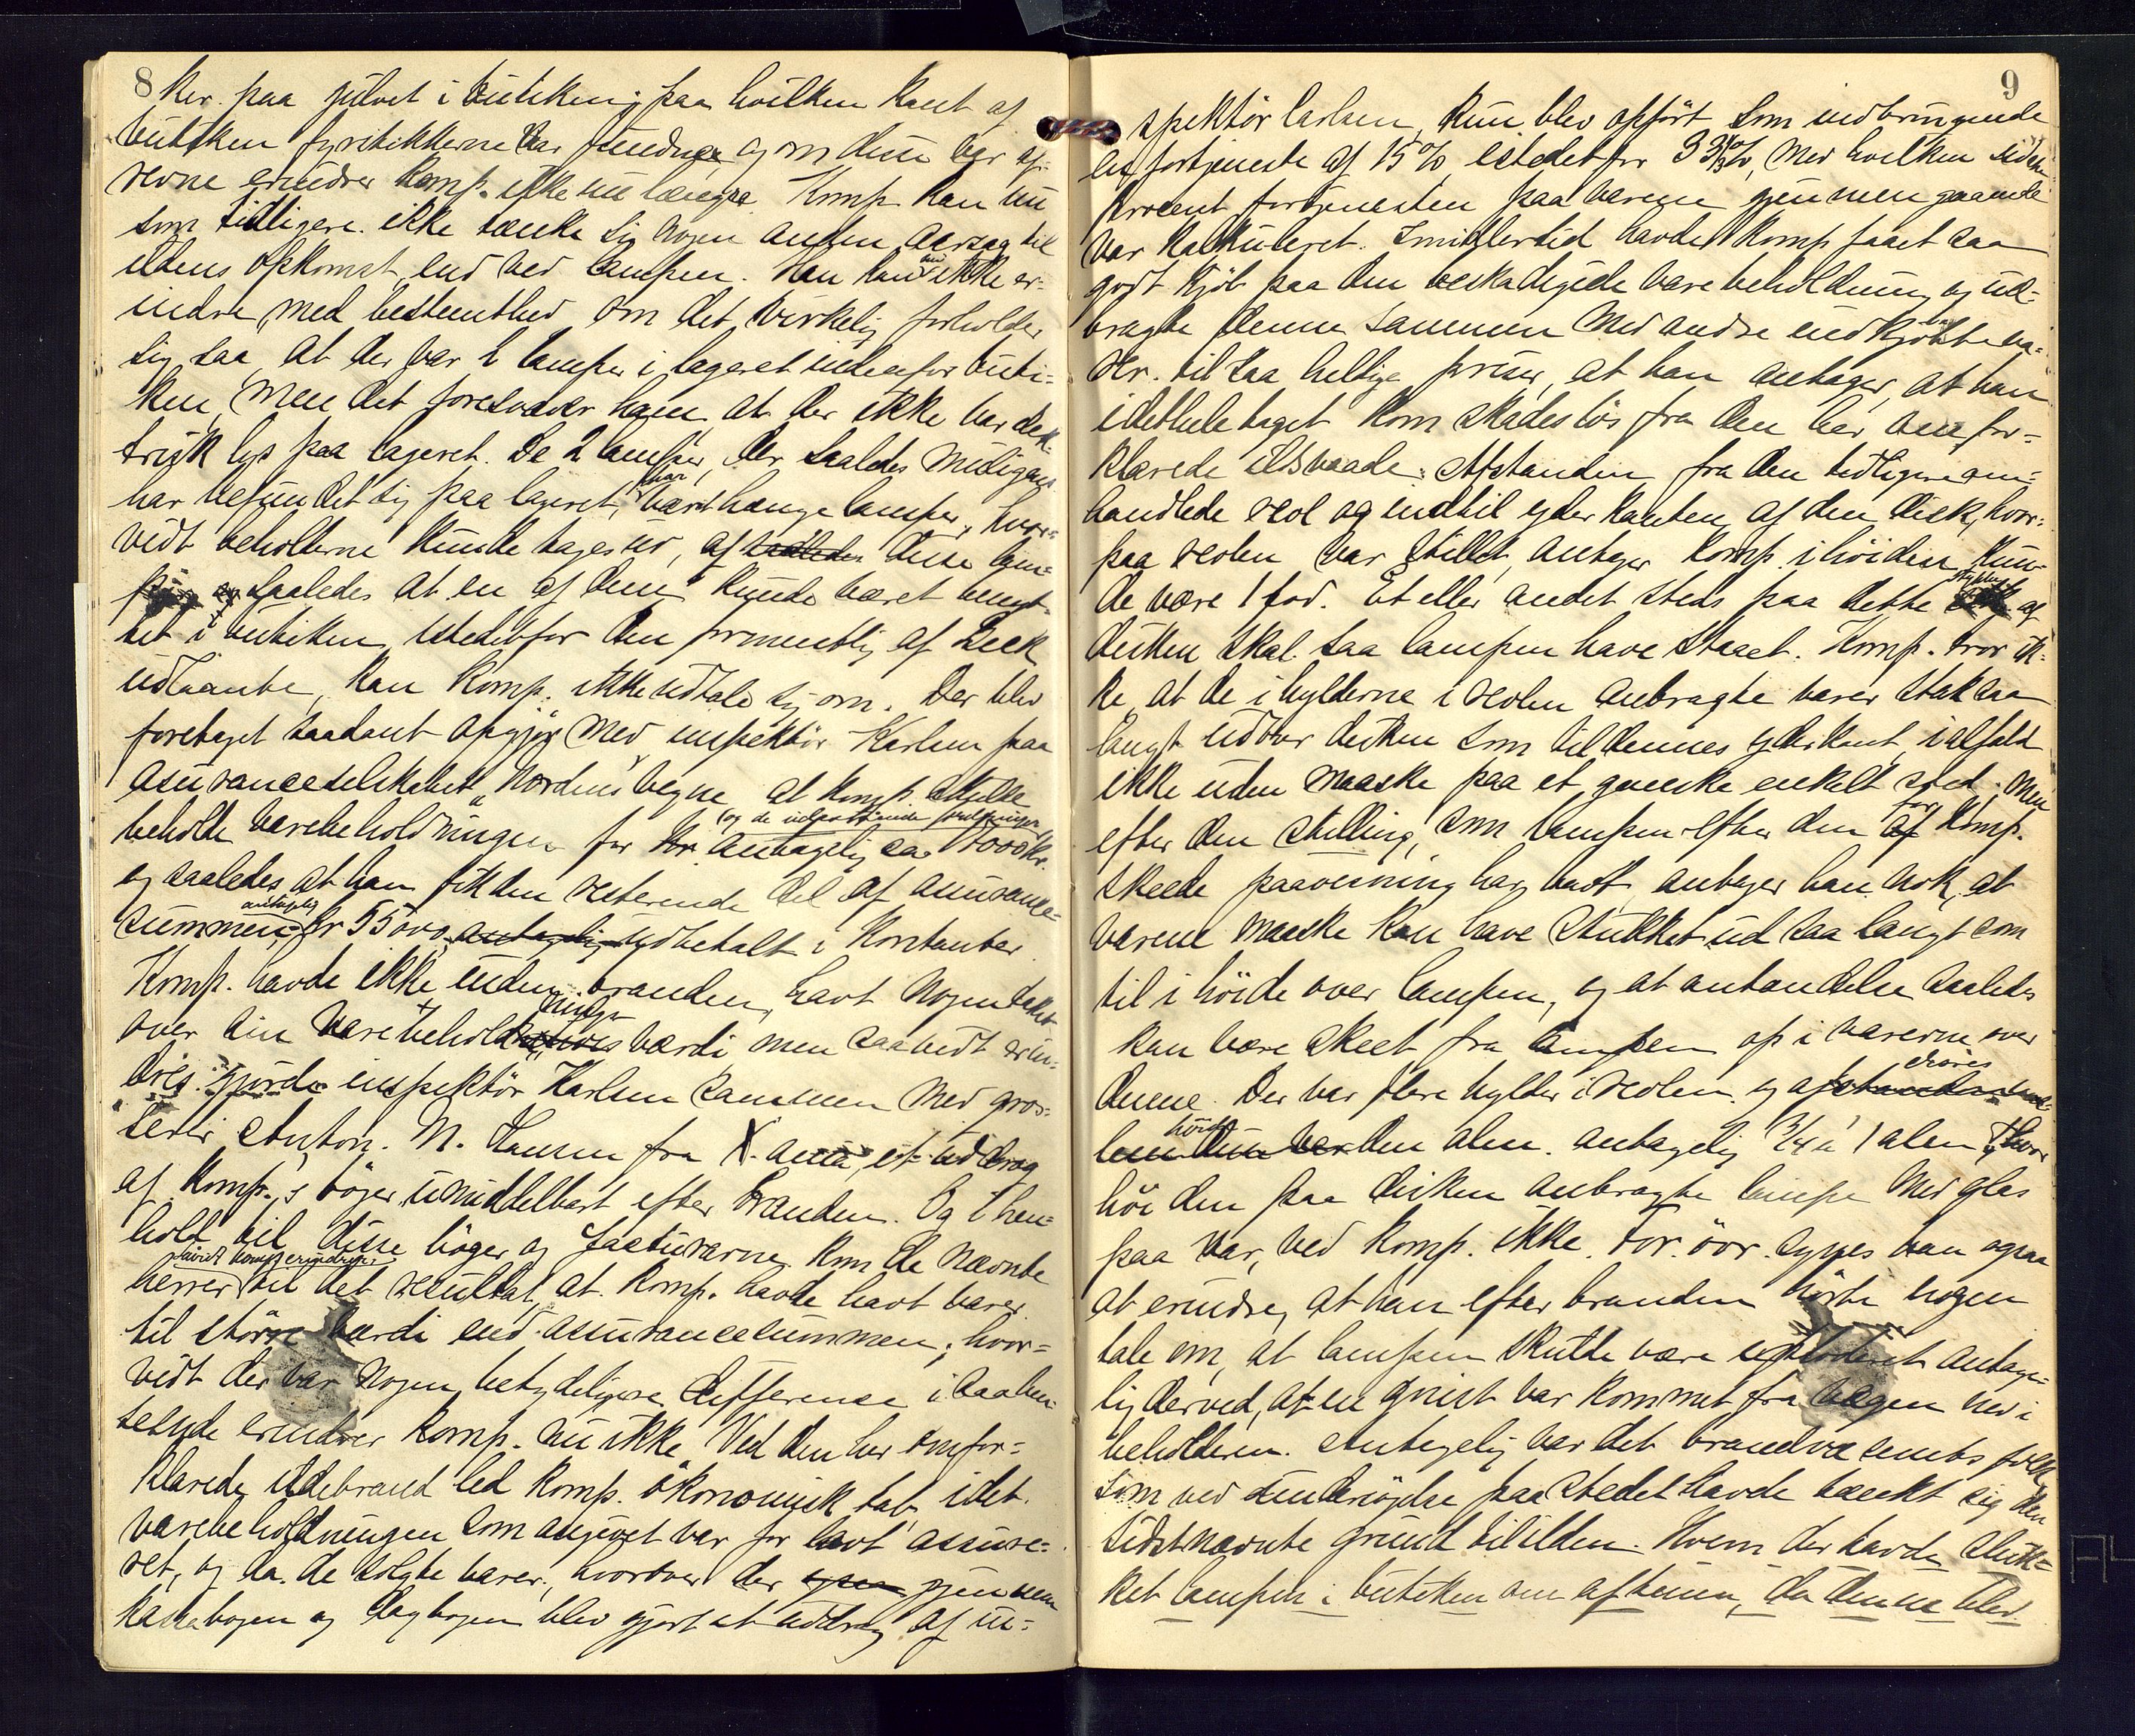 8
ker. paa gulvet i butiken; paa hvilken kant af
butiken fyrstikkerne var fundne og om dem var af-
revne erindrer Komp. ikke nu længre. Komp. kan nu
som tidligere ikke tænke sig nogen anden aarsag til
ildens opkomst, end ved lampen. Han kan nu ikke er-
indre med bestemthed om det virkelig forholder
sig saa, at der var 2 lamper i lageret indenfor buti-
ken, men det foresvæver ham at der ikke var elek-
trisk lys paa lageret. De 2 lamper, der saaledes muligens
har befundet sig paa lageret, har været hængelamper, hvor-
vidt beholderne kunde tages ud, af saaledes disse lam-
per og saaledes at en af dem kunde været benyt-
tet i butiken istedetfor den formentlig af Beck
udlaante, kan Komp. ikke udtale sig om. Der blev
foretaget saadant opgjør med inspektör Karlsen paa
assuranceselskabet "Norden"s vegne, at Komp. skulde
beholde varebeholdningen (og de udestaaende fordringer) for kr. antagelig ca. 17000 kr.
og saaledes at han fik den resterende del af assurance-
summen, antagelig kr 55000, antagelig udbetalt i kontanter.
Komp. havde ikke inden branden havt nogen takst
over sin varebeholdnings værdi men saavidt erin-
dres gjorde inspektör Karlsen sammen med gros-
serer Anton. M. Hansen fra X. ania et uddrag
af Komp.'s böger umiddelbart efter branden. Og i hen-
hold til disse böger og facturarne kom de nævnte
herrer saavidt komp. erindrer til det resultat, at Komp. havde havt varer
til större værdi end assurancesummen; hvor-
vidt der var nogen betydeligere difference i saahen-
seende erindrer Komp. nu ikke. Ved den her omfor-
klarede ildebrand led Komp. ökonomisk tab, idet
varebeholdningen som angivet var for lavt assure-
ret, og da de solgte varer, hvorover der gjennem
kassabogen og dagbogen blev gjort et uddrag af in-
9
spektör Carlsen, kun blev opfört som indbringende
en fortjeneste af 15 % istedetfor 33 1/3 %, med hvilken siden
procent fortjenesten paa varerne gjennemgaaende
var kalkuleret. Imidlertid havde Komp faaet saa
godt kjöb paa den beskadigede varebeholdning og ud-
bragte denne sammen med andre indkjöbte va-
rer. til saa heldige priser, at han antager, at han
idethele taget kom skadeslös fra den her omfor-
klarede ildsvaade. Afstanden fra den tidligere om-
handlede reol og indtil yderkanten af den disk, hvor-
paa reolen var stillet, antager Komp. i höiden kun-
de være 1 fod. Et eller andet steds paa dette stykke af
disken skal saa lampen have staaet. Komp. tror ik-
ke, at de i hylderne i reolen anbragte varer stak saa
langt udover disken som til dennes yderkant, ialfald
ikke uden maaske paa et ganske enkelt sted; men
efter den stilling, som lampen efter den for Komp.
skeede paavisning har havt, antager han nok, at
varerne maaske kan have stukket ud saa langt som
til i höide over lampen, og at antændelse saaledes
kan være skeet fra lampen op i varerne over
denne. Der var flere hylder i reolen og
höide den alen. antagelig 3/4 à 1 alen. Hvor
höi den paa disken anbragte lampe med glas
paa var, ved Komp. ikke. For. övr. synes han ogsaa
at erindre, at han efter branden hörte nogen
tale om, at lampen skulde være exploderet antage-
lig derved, at en gnist var kommet fra vægen ned i
beholderen. Antagelig var det brandvæsenets folk
som ved undersögelse paa stedet havde tænkt sig den
sidstnævnte grund til ilden. Hvem der havde sluk-
ket lampen i butiken om aftenen, da denne blev